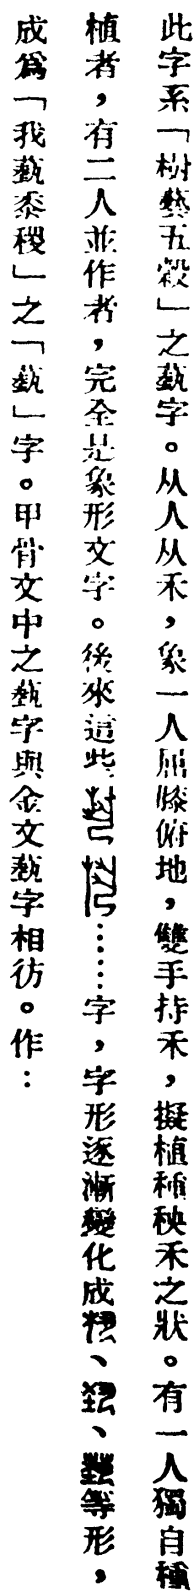 此字系「樹藝五穀」之蓺字。从人从禾，象一人屈膝俯地，雙手持禾，擬植種秧禾之狀。有一人獨自種
植者，有二人並作者，完全是象形文字。後來這些……字，字形逐漸變化成、、等形，
成為「我蓺黍稷」之「蓺」字。甲骨文中之蓺字與金文蓺字相彷。作：